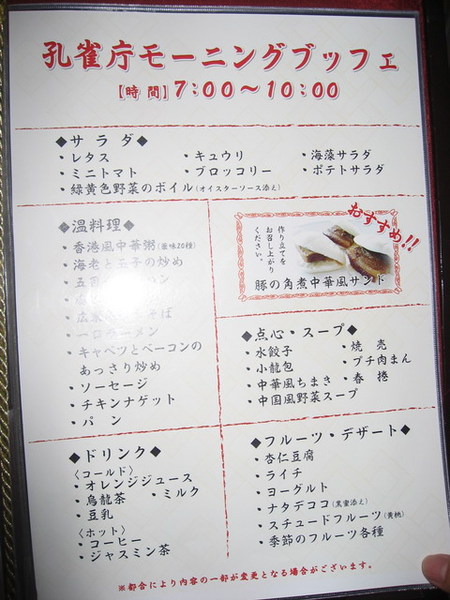 孔雀庁モーニングブッフェ
【時間】7:00～10:00
◆サラダ◆
・レタス ・キュウリ ・海藻サラダ
・ミニトマト ・ブロッコリー ・ポテトサラダ
・緑黄色野菜のボイル(オイスターソース添え)
◆温料理◆
・香港風中華粥(薬味20種)
・海老と玉子の炒め
・五
・一口ラーメン
・キャベツとベーコンの
あっさり炒め
・ソーセージ
・チキンナゲット
・パン
おすすめ!!
作り立てを
お召し上がり
ください。
豚の角煮中華風サンド
◆点心・スープ◆
・水餃子 ・焼売
・小龍包 ・プチ肉まん
・中華風ちまき ・春捲
・中国風野菜スープ
◆ドリンク◆
〈コールド〉
・オレンジジュース
・烏龍茶 ・ミルク
・豆乳
〈ホット〉
・コーヒー
・ジャスミン茶
◆フルーツ・デザート◆
・杏仁豆腐
・ライチ
・ヨーグルト
・ナタデココ(黒蜜添え)
・スチュードフルーツ(黄桃)
・季節のフルーツ各種
※都合により内容の一部が変更となる場合がございます。